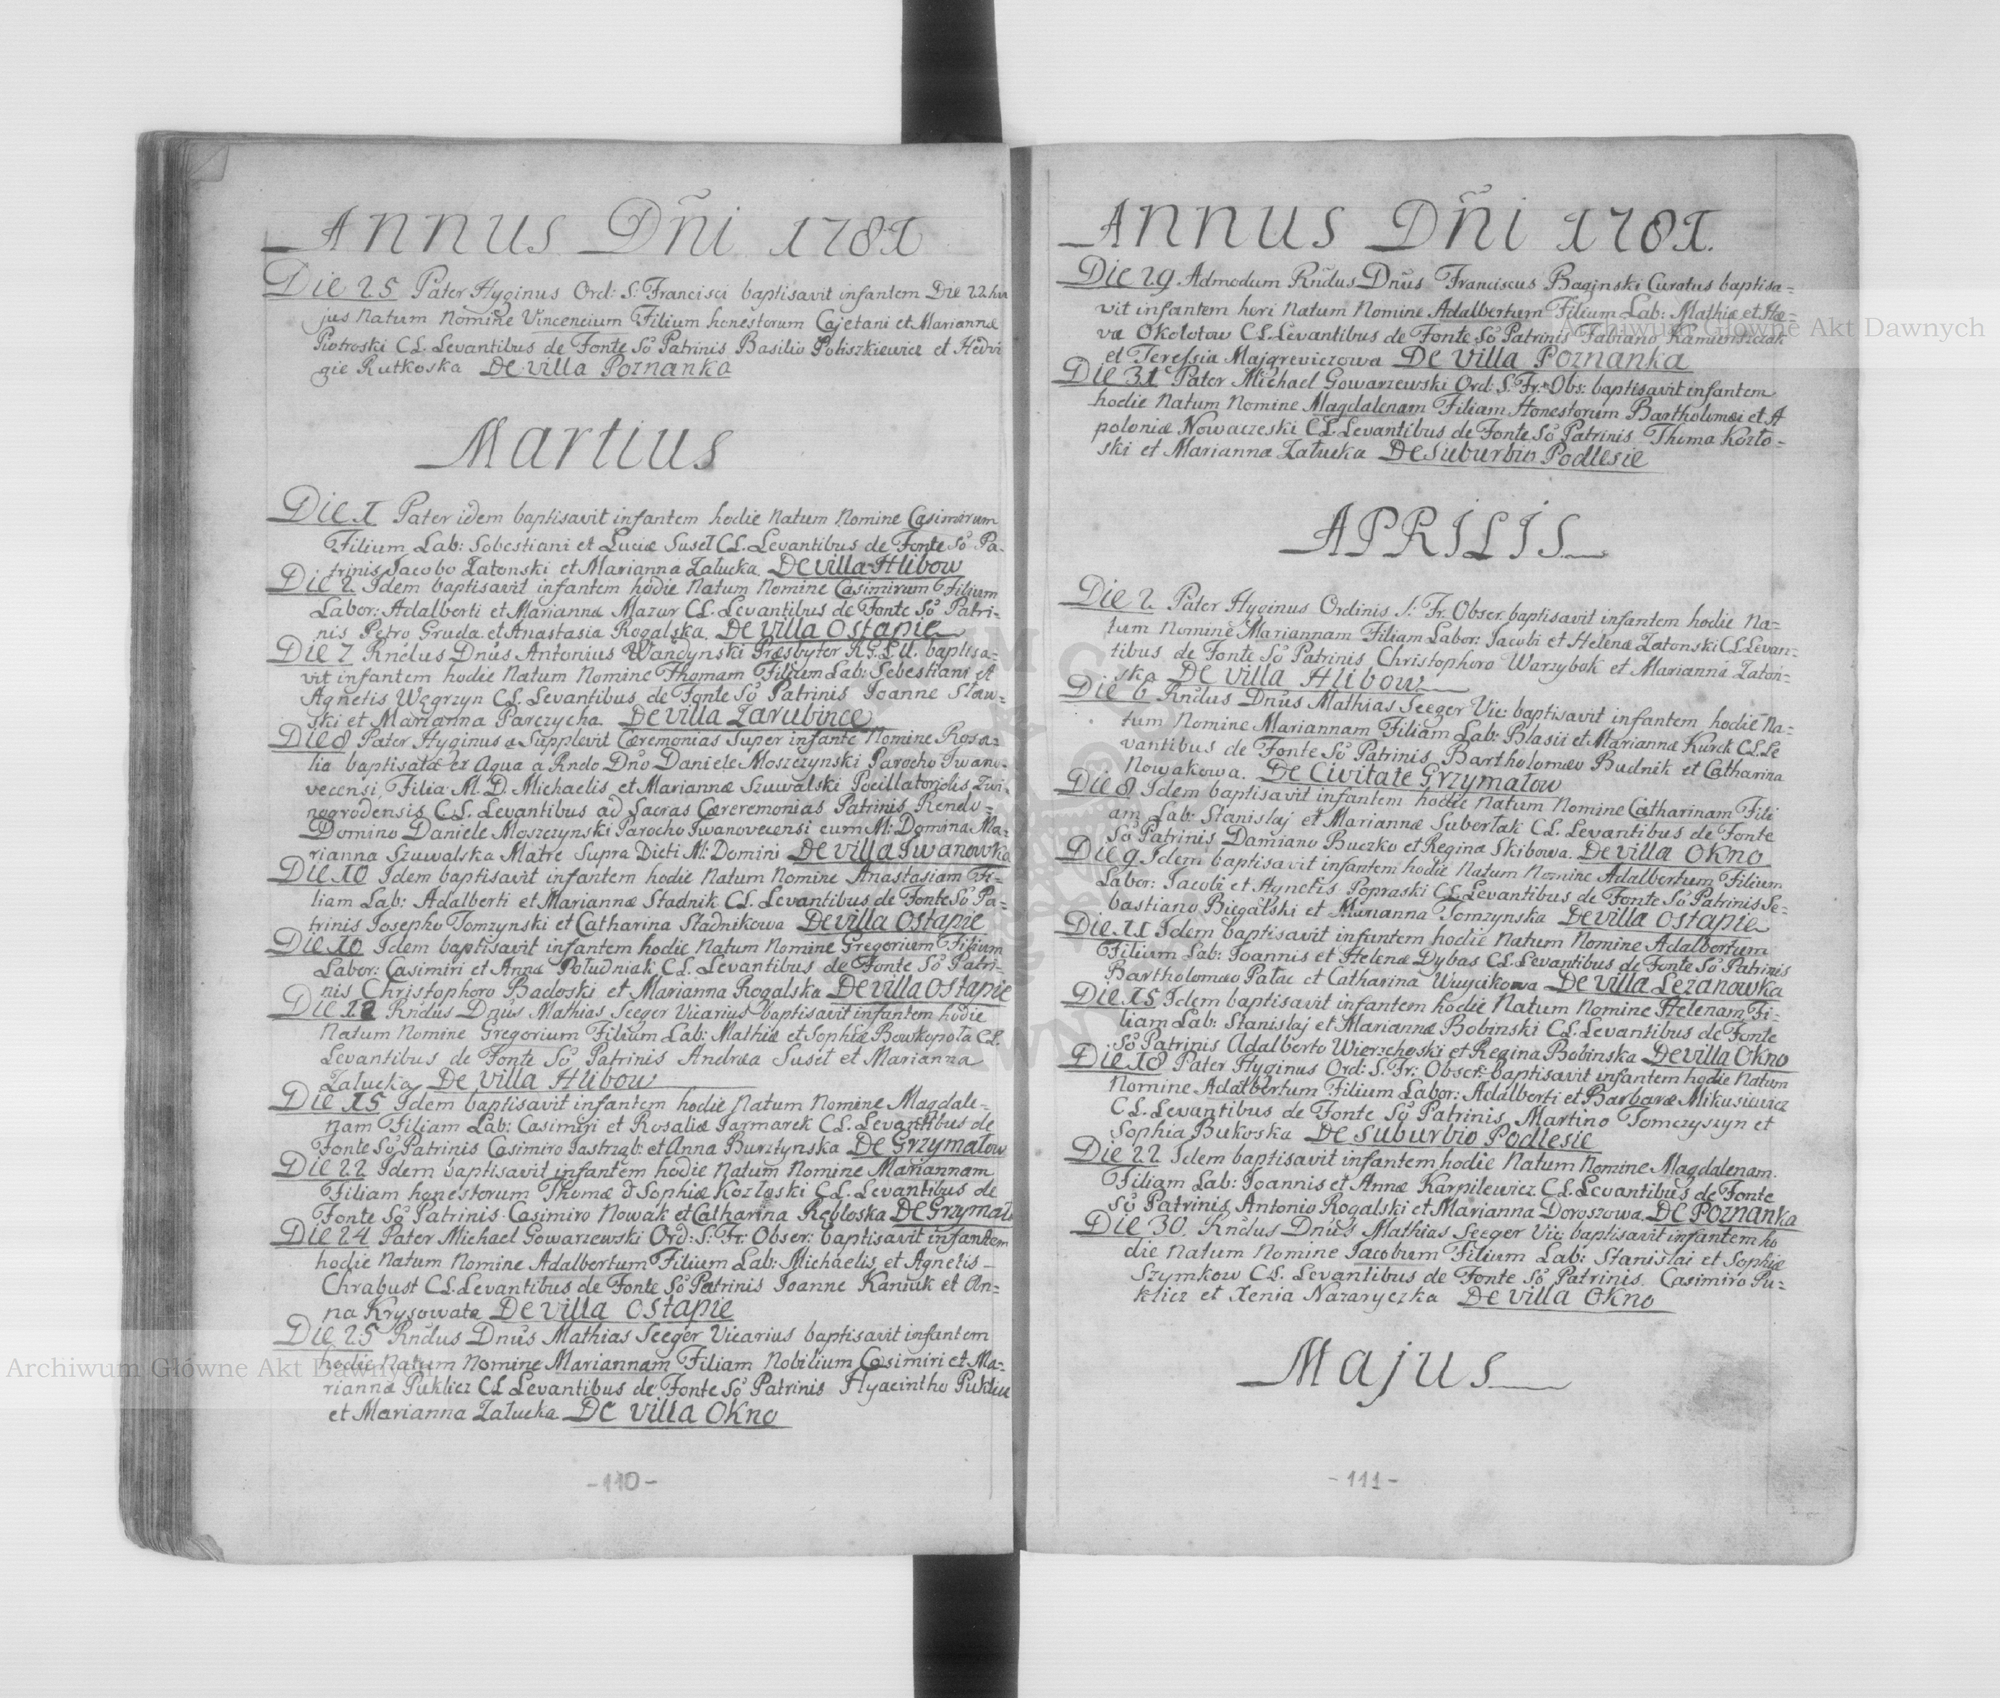 Annus Dñi 1781
Die 25 Pater Hyginus Ord: S: Francisci baptisavit infantem Die 22 hu
jus Natum Nomine Vincencium Filium honestorum Cajetani et Mariannæ
Piotroski C.L. Levantibus de Fonte So Patrinis Basilio Poliszkiewicz et Hedvi
gie Rutkoska De Villa Poznanka
Martius
Die 1 Pater idem baptisavit infantem hodie Natum Nomine Casimirum
Filium Lab: Sobestiani et Luciæ Suset C.L. Levantibus de Fonte So Pa-
trinis Jacobo Zatonski et Marianna Załucka. De villa Hlibow
Die 2 Idem baptisavit infantem hodie Natum Nomine Casimirum Filium
Labor: Adalberti et Mariannæ Mazur C.L. Levantibus de Fonte So Patri-
nis Petro Gruda et Anastasia Rogalska. De Villa Ostapie
Die 7 Rndus Dnus Antonius Wandynski Præsbyter R.G.L.U. baptisa-
vit infantem hodie Natum Nomine Thomam Filium Lab: Sebestiani et
Agnetis Węgrzyn C.L. Levantibus de Fonte So Patrinis Joanne Staw-
ski et Marianna Parczycha. De villa Zarubince
Die 8 Pater Hyginus Supplevit Cæremonias super infante Nomine Rosa-
lia baptisata ex Aqua a Rndo Dno Daniele Moszczynski Parocho Jwano-
vecensi, Filia M. D. Michaelis et Mariannæ Szuwalski Pocillatoriolis Zwi-
nogrodensis C.L. Levantibus ad Sacras Cæreremonias Patrinis Rendo-
Domino Daniele Moszczynski Parocho Jwanovecensi cum M: Domina Ma-
rianna Szuwalska Matre Supra Dicti M: Domini De villa Jwanowka
Die 10 Idem baptisavit infantem hodie Natum Nomine Anastasiam Fi-
liam Lab: Adalberti et Mariannæ Stadnik C.L. Levantibus de Fonte So Pa-
trinis Josepho Tomzynski et Catharina Stadnikowa De villa Ostapie
Die 10 Idem baptisavit infantem hodie Natum Nomine Gregorium Filium
Labor: Casimiri et Annæ Południak C.L. Levantibus de Fonte So Patri-
nis Christophoro Badoski et Marianna Rogalska De villa Ostapie
Die 12 Rndus Dnus Mathias Seeger Vicarius baptisavit infantem hodie
Natum Nomine Gregorium Filium Lab: Mathiæ et Sophiæ Bowkopoła C.L.
Levantibus de Fonte So Patrinis Andræa Suset et Marianna
Załucka De Villa Hlibow
Die 15 Idem baptisavit infantem hodie Natum Nomine Magdale-
nam Filiam Lab: Casimiri et Rosaliæ Jarmarek C.L. Levantibus de
Fonte So Patrinis Casimiro Jastrząb: et Anna Bursztynska De Grzymałow
Die 22 Idem baptisavit infantem hodie Natum Nomine Mariannam
Filiam honestorum Thomæ & Sophiæ Kozłoski C.L. Levantibus de
Fonte So Patrinis Casimiro Nowak et Catharina Rębloska De Grzymało
Die 24 Pater Michael Gowarzewski Ord: S: Fr: Obser: baptisavit infantem
hodie Natum Nomine Adalbertum Filium Lab: Michaelis et Agnetis
Chrabust C.L. Levantibus de Fonte So Patrinis Joanne Kaniuk et An-
na Krysowata De Villa Ostapie
Die 25 Rndus Dnus Mathias Seeger Vicarius baptisavit infantem
hodie Natum Nomine Mariannam Filiam Nobilium Casimiri et Ma-
riannæ Puklicz C.L. Levantibus de Fonte So Patrinis Hyacintho Puklicz
et Marianna Załucka De Villa Okno
-110-
Annus Dñi 1781.
Die 29 Admodum Rndus Dnus Franciscus Baginski Curatus baptisa-
vit infantem heri Natum Nomine Adalbertum Filium Lab: Mathiæ et Hæ-
va Okolotow C.L. Levantibus de Fonte So Patrinis Fabiano Kamienszczak
et Teressia Majgreviczowa De Villa Poznanka
Die 31 Pater Michael Gowarzewski Ord: S: Fr: Obs: baptisavit infantem
hodie Natum Nomine Magdalenam Filiam Honestorum Bartholomæi et A
poloniæ Nowaczeski C.L. Levantibus de Fonte So Patrinis Thoma Kozło-
ski et Marianna Załucka De Suburbio Podlesie
APRILIS
Die 2 Pater Hyginus Ordinis S: Fr: Obser. baptisavit infantem hodie Na-
tum Nomine Mariannam Filiam Labor: Jacobi et Helenæ Zatonski C.L. Levan-
tibus de Fonte So Patrinis Christophoro Warzybok et Marianna Zaton-
ska De Villa Hlibow
Die 6 Rndus Dnus Mathias Seeger Vic: baptisavit infantem hodie Na-
tum Nomine Mariannam Filiam Lab: Blasii et Mariannæ Kurek C.L. Le
vantibus de Fonte So Patrinis Bartholomæo Budnik et Catharina
Nowakowa. De Civitate Grzymałow
Die 8 Idem baptisavit infantem hodie Natum Nomine Catharinam Fili
am Lab: Stanislaj et Mariannæ Suberlak C.L. Levantibus de Fonte
So Patrinis Damiano Buczko et Regina Skibowa. De Villa Okno
Die 9 Idem baptisavit infantem hodie Natum Nomine Adalbertum Filium
Labor: Jacobi et Agnetis Popraski C.L. Levantibus de Fonte So Patrinis Se-
bastiano Biegalski et Marianna Tomzynska De villa Ostapie
Die 11 Idem baptisavit infantem hodie Natum Nomine Adalbertum
Filium Lab: Joannis et Helenæ Dybas C.L. Levantibus de Fonte So Patrinis
Bartholomæo Pałac et Catharina Wuycikowa De villa Lezanowka
Die 15 Idem baptisavit infantem hodie Natum Nomine Helenam Fi-
liam Lab: Stanislaj et Mariannæ Bobinski C.L. Levantibus de Fonte
So Patrinis Adalberto Wierzchoski et Regina Bobinska De villa Okno
Die 18 Pater Hyginus Ord: S. Fr: Obser: baptisavit infantem hodie Natum
Nomine Adalbertum Filium Labor: Adalberti et Barbaræ Mikusiewicz
C.L. Levantibus de Fonte So Patrinis Martino Tomczyszyn et
Sophia Bukoska De Suburbio Podlesie
Die 22 Idem baptisavit infantem hodie Natum Nomine Magdalenam.
Filiam Lab: Joannis et Annæ Karpilewicz C.L. Levantibus de Fonte
So Patrinis Antonio Rogalski et Marianna Doroszowa. De Poznanka
Die 30. Rndus Dnus Mathias Seeger Vic: baptisavit infantem ho
die Natum Nomine Jacobum Filium Lab: Stanislai et Sophiæ
Szymkow C.L. Levantibus de Fonte So Patrinis Casimiro Pu-
klicz et Xenia Nazaryczka De Villa Okno
Majus
-111-
Archiwum Główne Akt Dawnych
Archiwum Główne Akt Dawnych